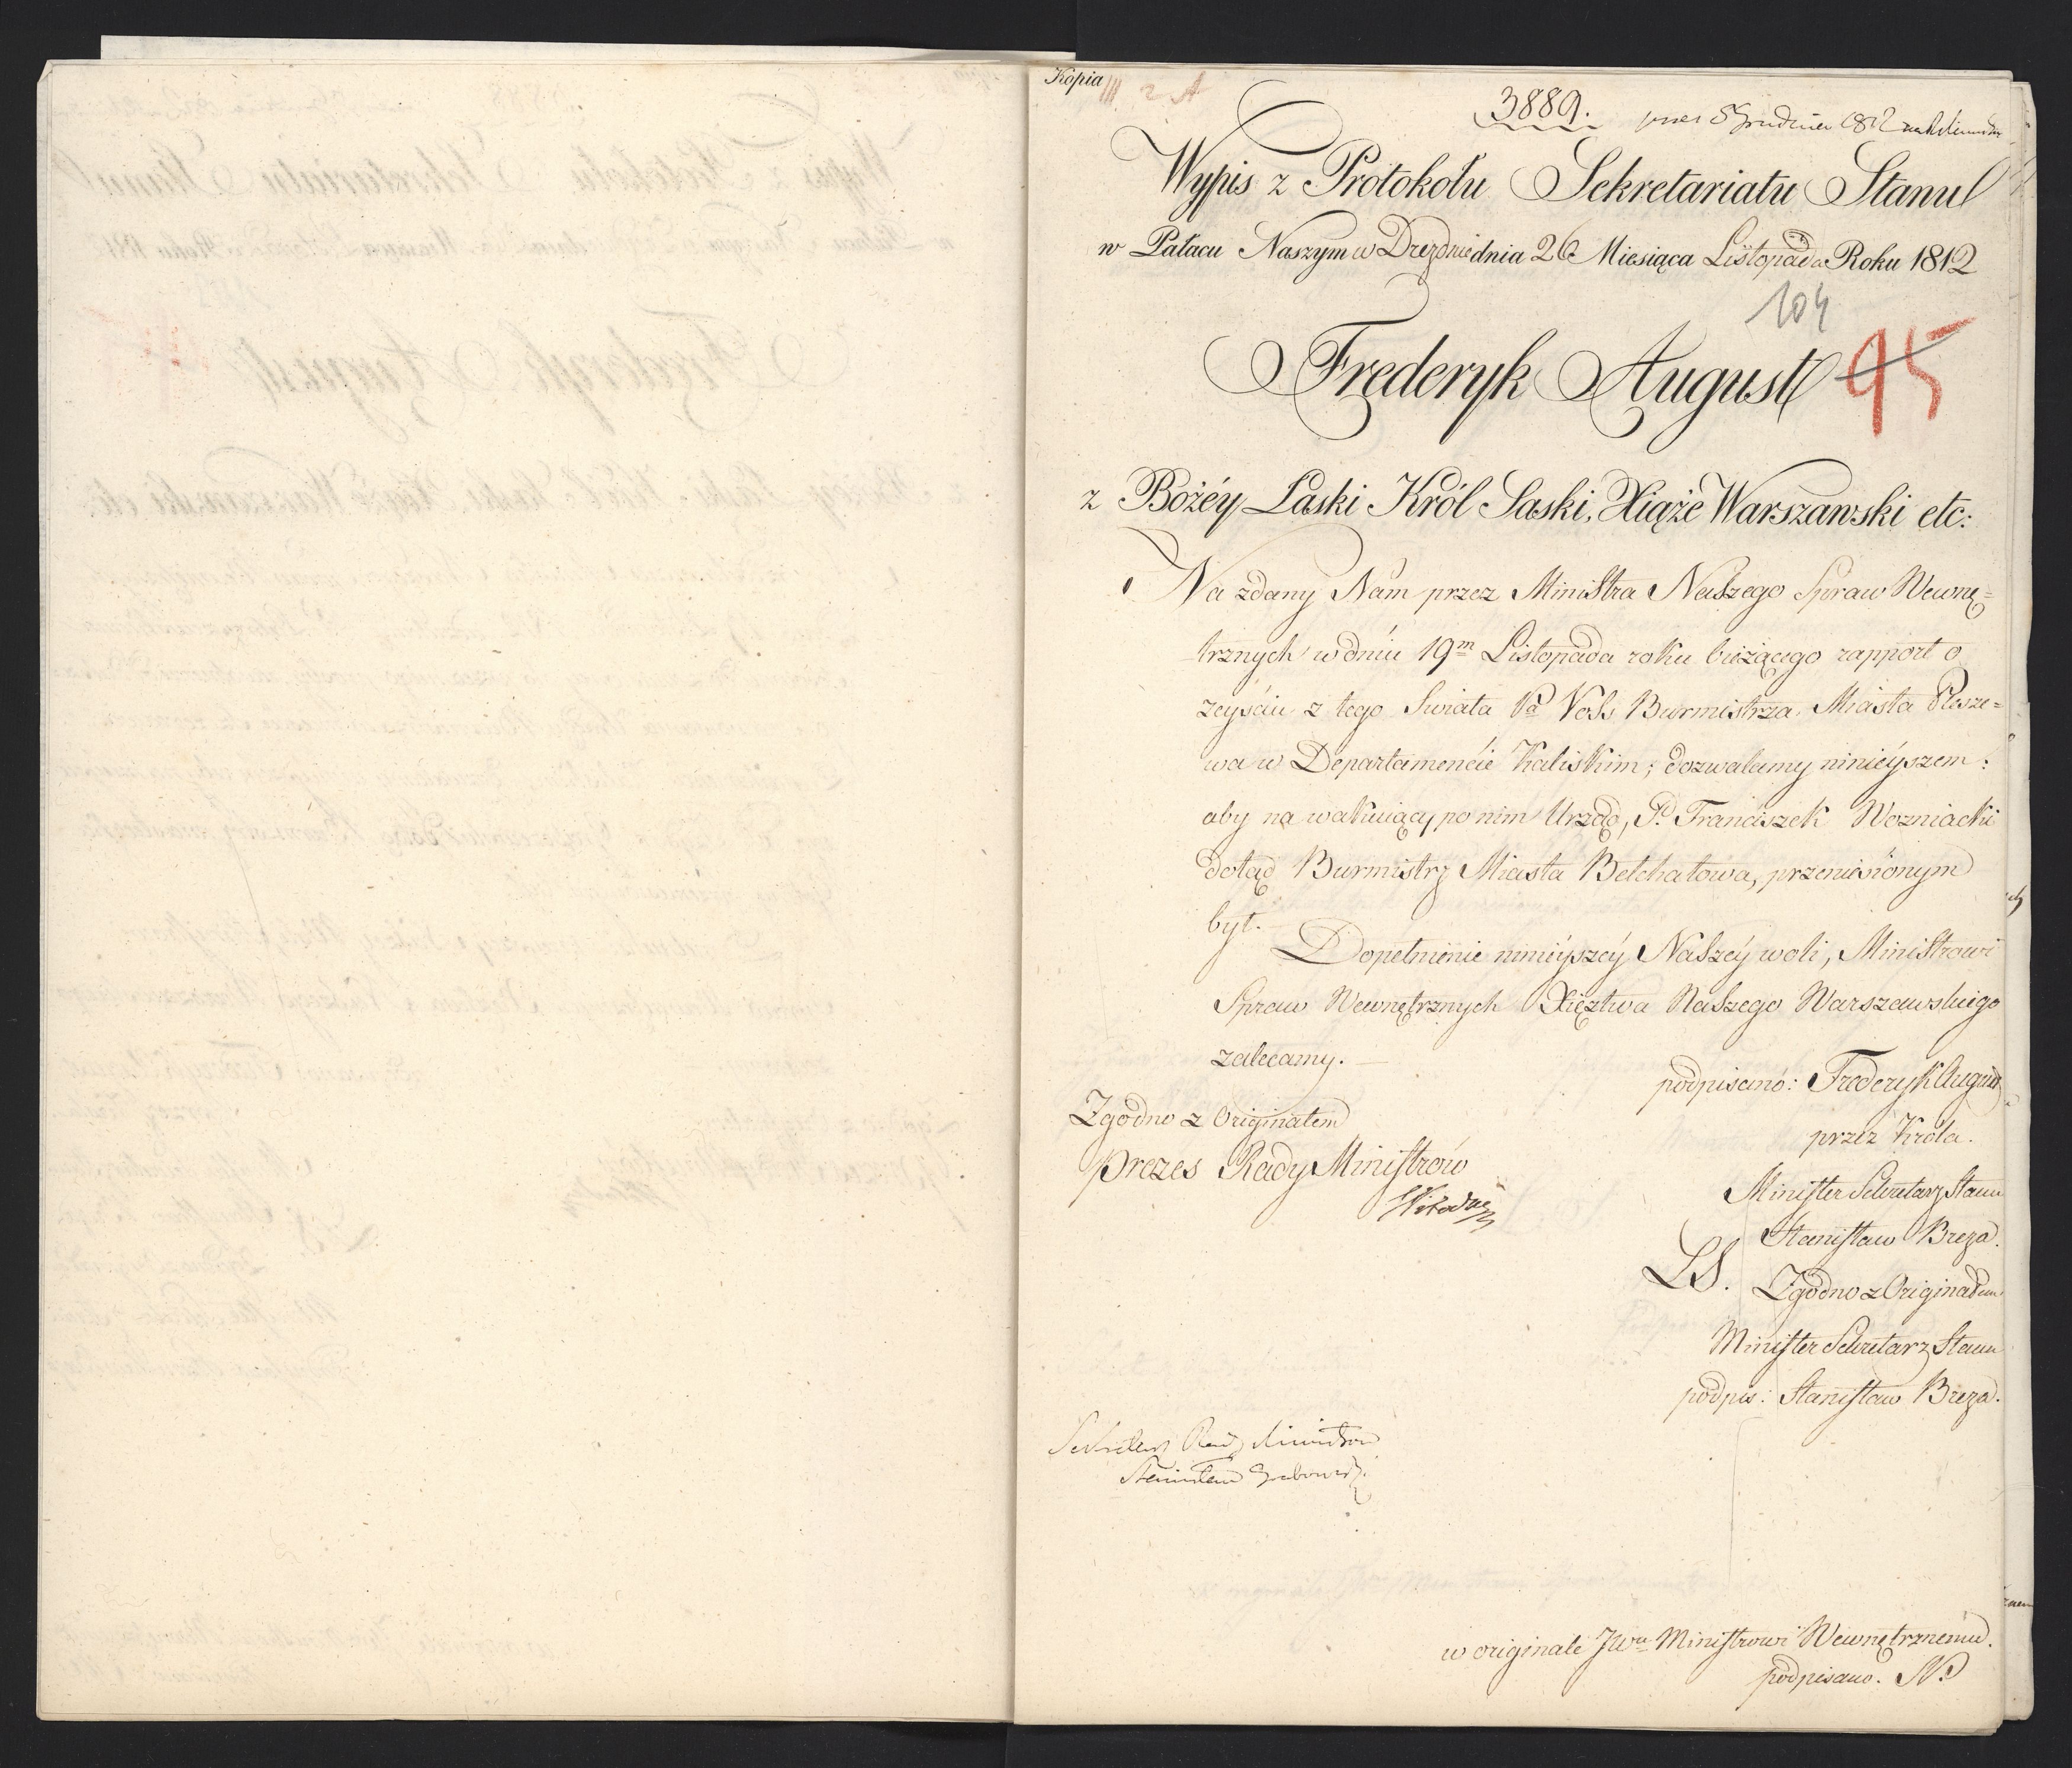 Kopia
3889.
Wypis z Protokołu Sekretariatu Stanu
w Pałacu Naszym w Dreznie dnia 26 Miesiąca Listopada Roku 1812
104
Frederyk August 95
z Bożéy Łaski Król Saski, Xiąże Warszawski etc:
Na zdany Nam przez Ministra Naszego Spraw Wewnę=
trznych w dniu 19m Listopada roku bieżącego rapport o
zeyściu z tego Swiata Pa Voss Burmistrza Miasta Plesze=
wa w Departamencie Kaliskim; dozwalamy ninieyszem:
aby na wakuiący po nim Urząd, P. Franciszek Wozniacki
dotąd Burmistrz Miasta Bełchatowa, przeniesionym
był.
Dopełnienie ninieyszéy Naszéy woli, Ministrowi
Spraw Wewnętrznych Xięztwa Naszego Warszawskiego
zalecamy.
podpisano: Frederyk August
przez Króla.
Zgodno z Originałem
Prezes Rady Ministrów
Minister Sekretarz Stanu
Stanisław Breza.
LS. Zgodno z Originałem
Minister Sekretarz Stanu
podpis: Stanisław Breza.
Sekretarz Rady Ministrow
Stanisław Grabowski
w originale JWu Ministrowi Wewnętrznemu.
podpisano. SN.